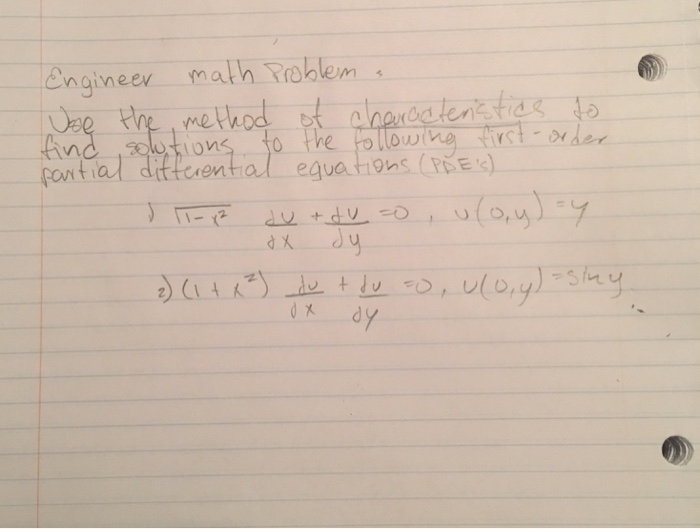 Engineer math Problem.
Use the method of characteristics to
find solutions to the following first-order
partial differential equations (PDE's)
1) √1-x² du/dx + du/dy = 0, u(0,y) = y
2) (1 + x²) du/dx + du/dy = 0, u(0,y) = sin y